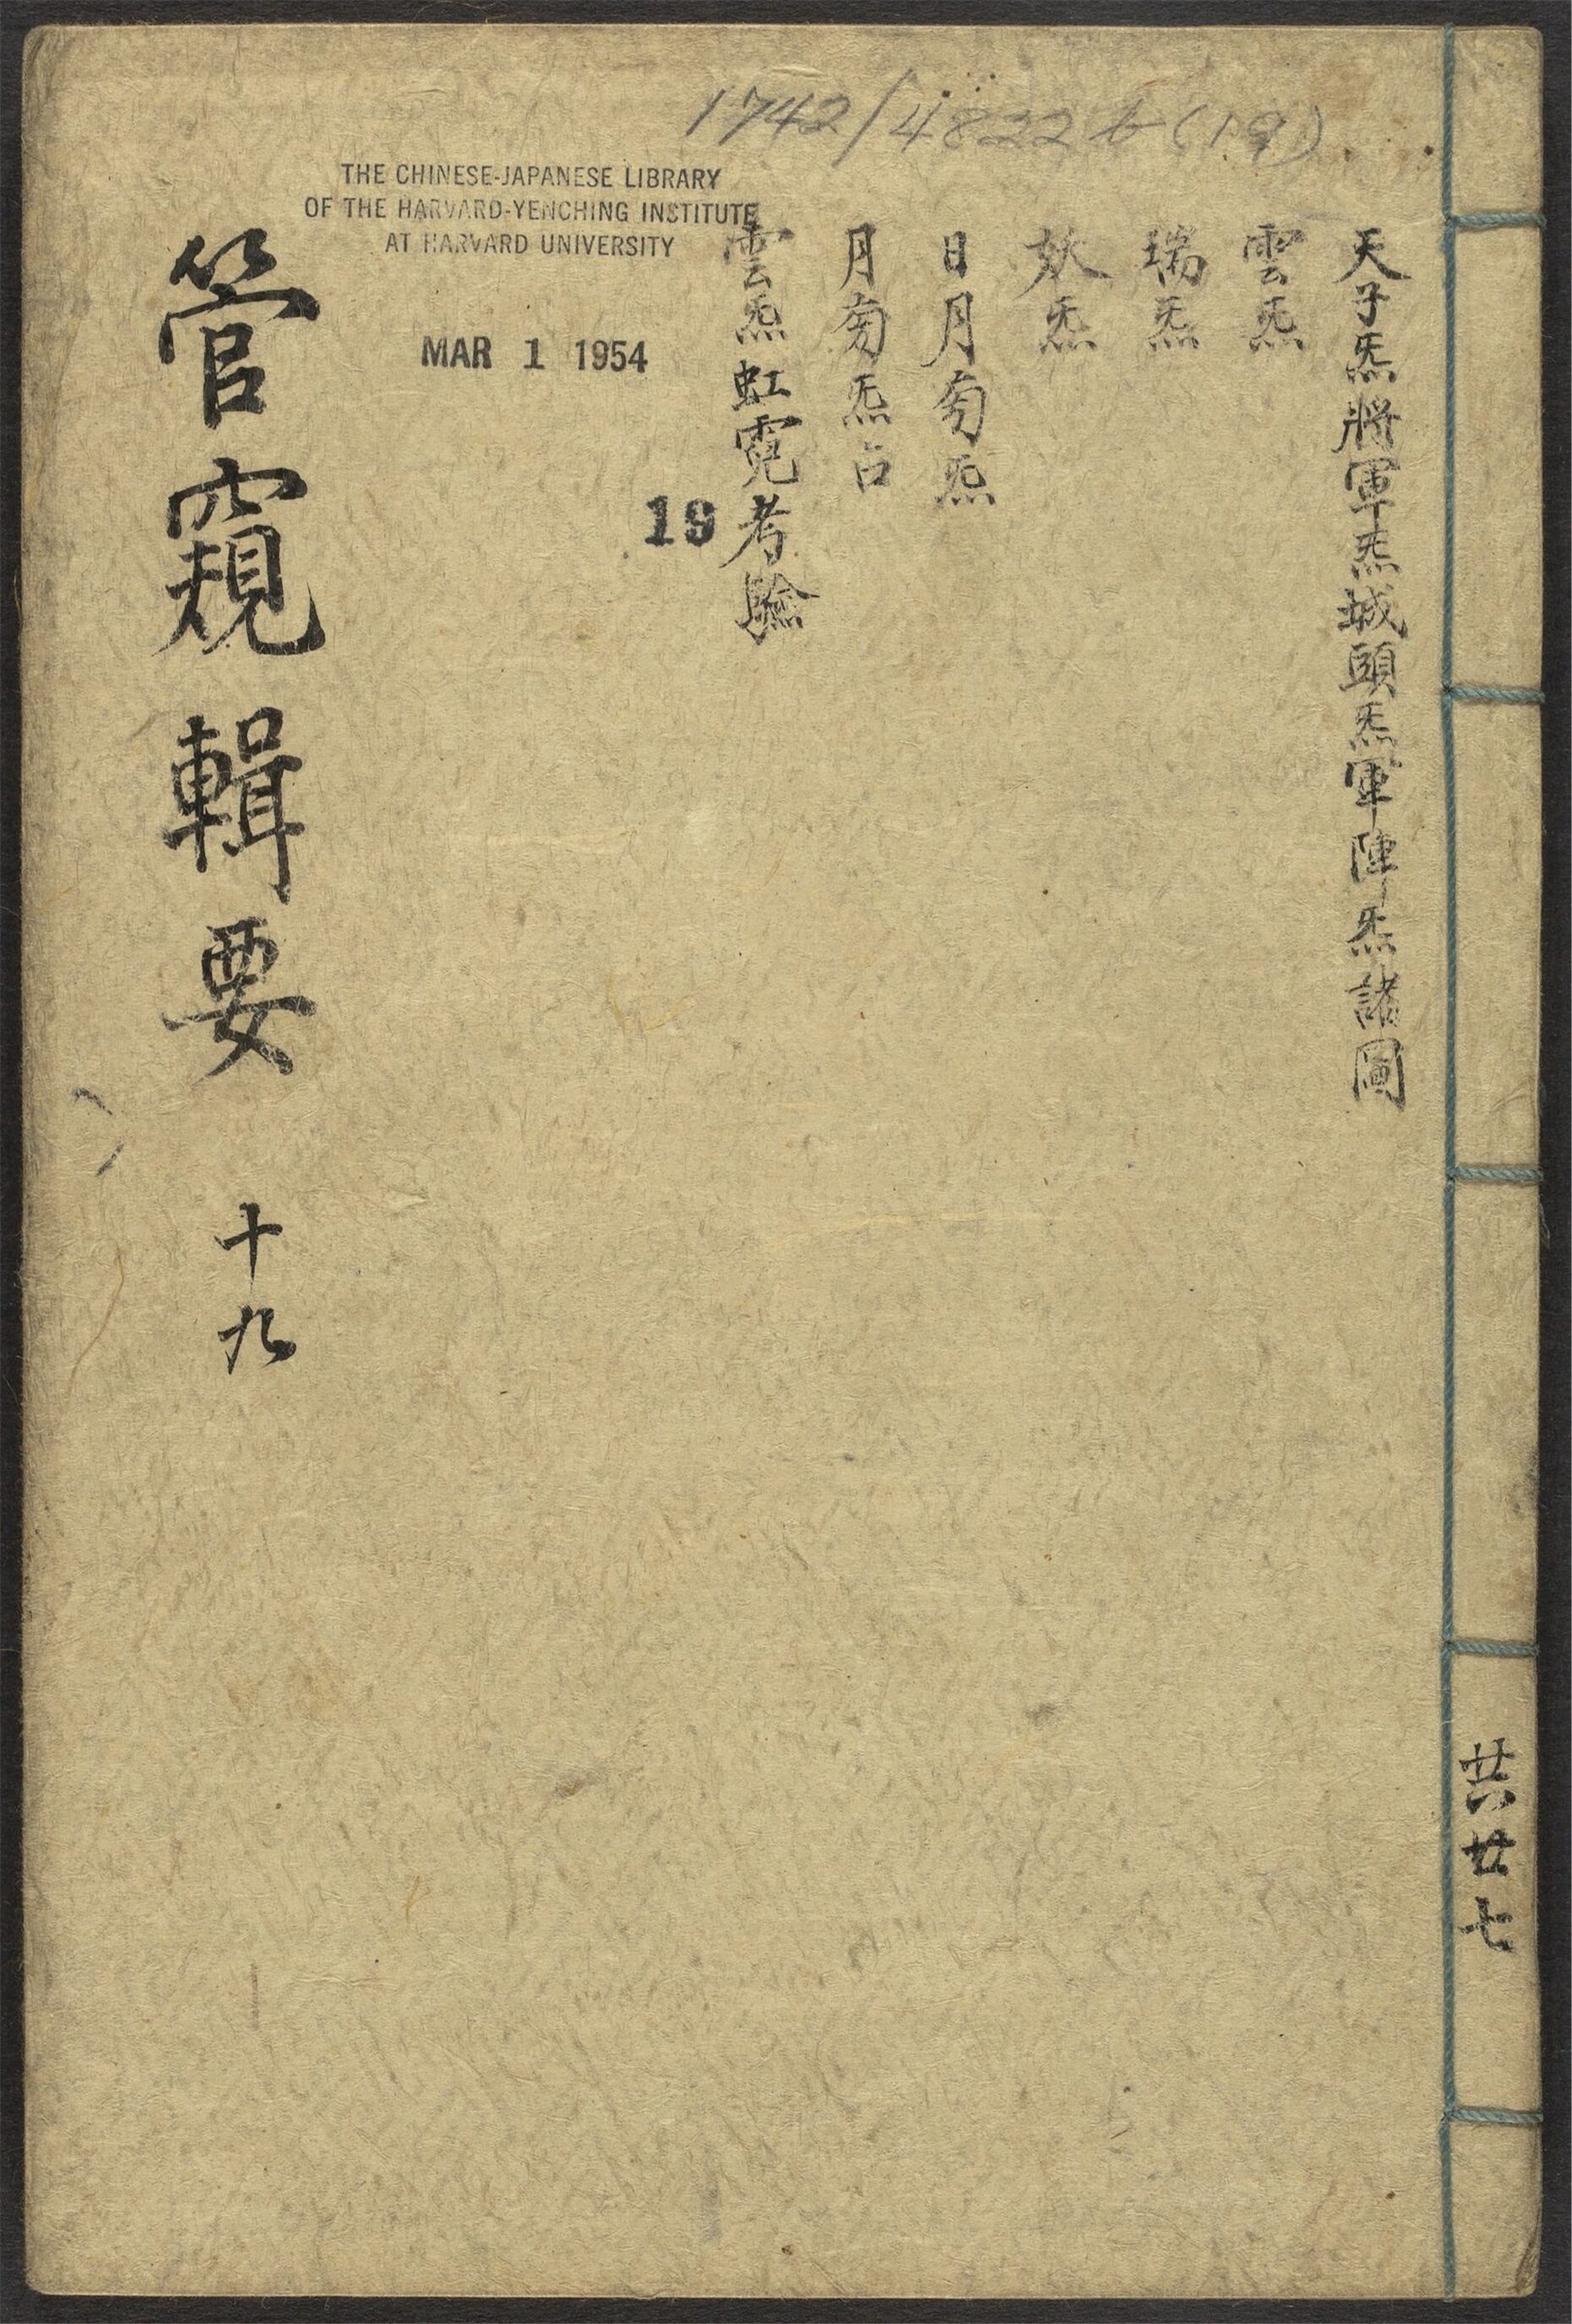 1742/4822b(19)
THE CHINESE-JAPANESE LIBRARY
OF THE HARVARD-YENCHING INSTITUTE
AT HARVARD UNIVERSITY
MAR 1 1954
19
天子炁將軍炁城頭炁軍陣炁諸圖
雲炁
瑞炁
妖炁
日月旁炁
月旁炁占
雲炁虹霓考驗
管窺輯要 十九
共廿七